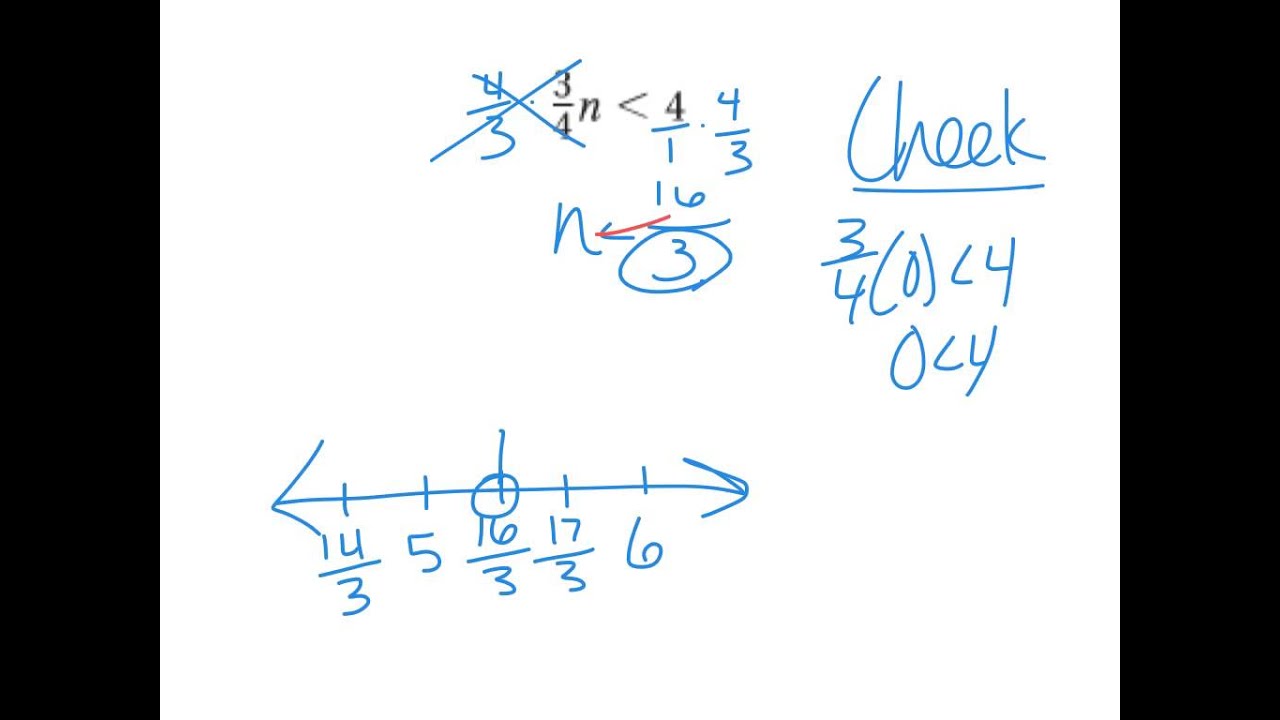 4/3 · 3/4 n < 4/1 · 4/3
n < 16/3
Check
3/4 (0) < 4
0 < 4
14/3 5 16/3 17/3 6